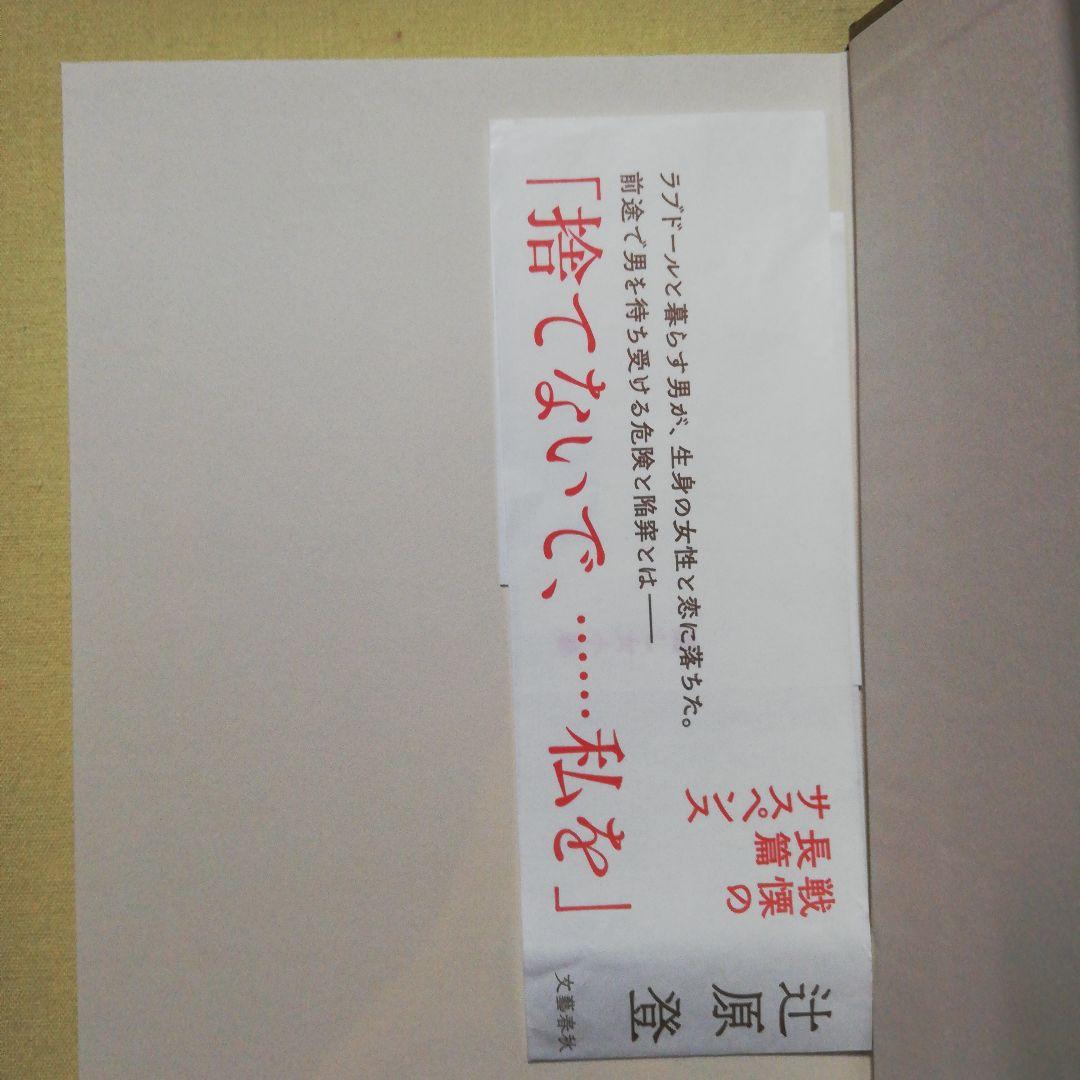 戦慄の
長篇
サスペンス
ラブドールと暮らす男が、生身の女性と恋に落ちた。
前途で男を待ち受ける危険と陥穽とは――
「捨てないで、……私を」
辻原登
文藝春秋